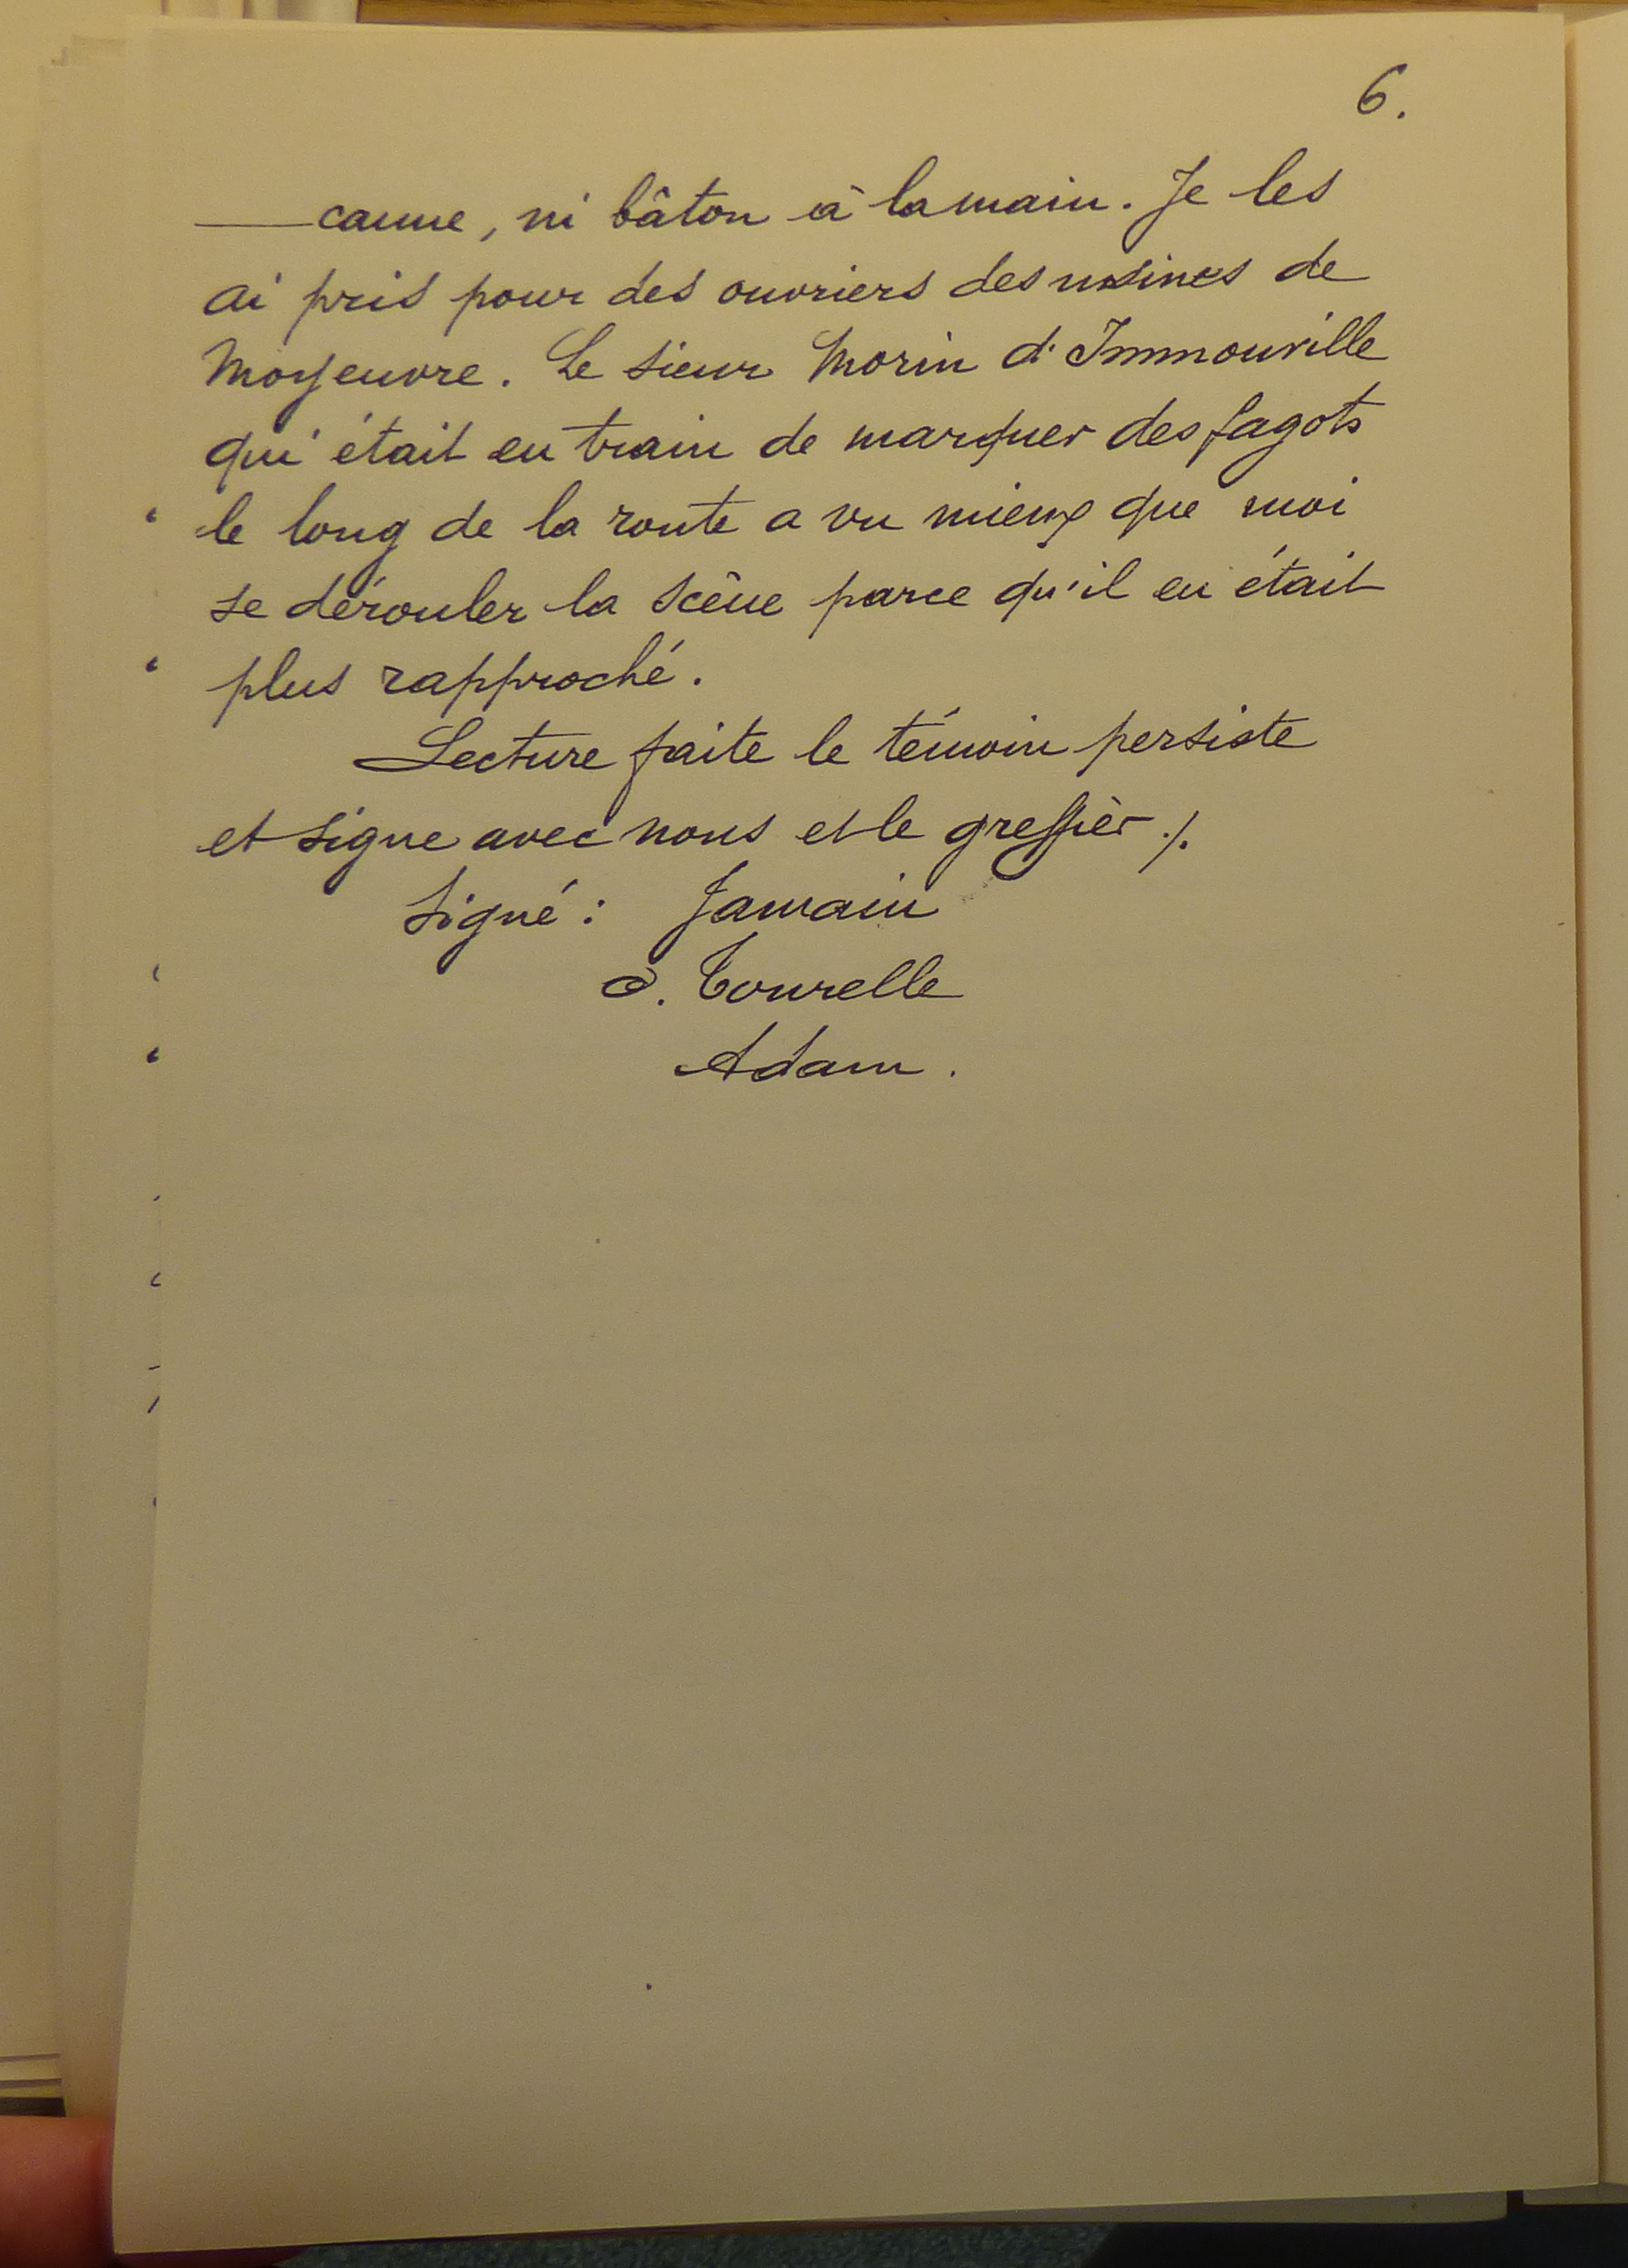 6.
canne, ni bâton à la main. Je les
ai pris pour des ouvriers des usines de
Moyeuvre. Le sieur Morin d'Immonville
qui était en train de marquer des fagots
le long de la route a vu mieux que moi
se dérouler la scène parce qu'il en était
plus rapproché.
Lecture faite le témoin persiste
et signe avec nous et le greffier ./.
Signé : Jamain
O. Tourelle
Adam.